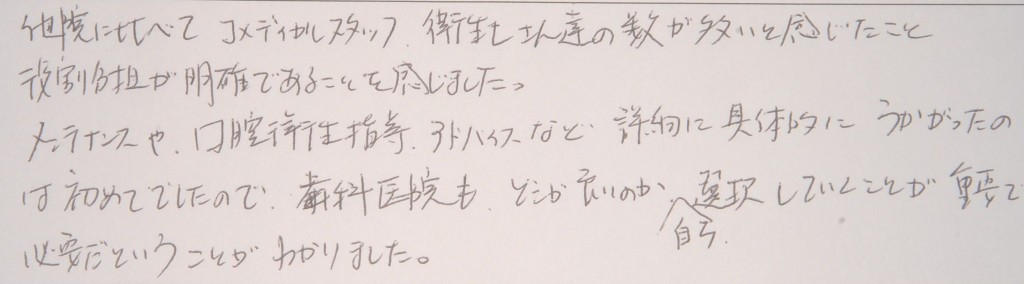 他院に比べて コメディカルスタッフ、衛生士さん達の数が多いと感じたこと
役割分担が明確であることを感じました。
メンテナンスや、口腔衛生指導、アドバイスなど 詳細に具体的に うかがったの
は初めてでしたので、歯科医院も、どこが良いのか、自ら選択していくことが重要で
必要だということがわかりました。